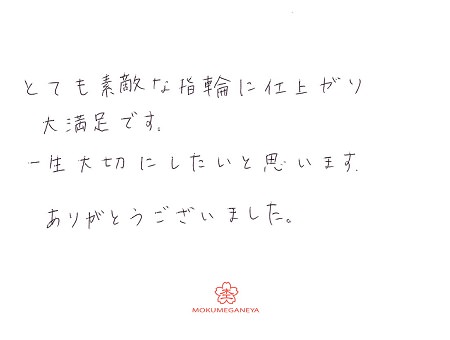 とても素敵な指輪に仕上がり
大満足です。
一生大切にしたいと思います.
ありがとうございました。
MOKUMEGANEYA